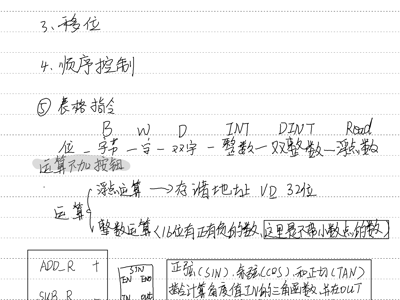 3、移位
4、顺序控制
⑤ 表格指令
B W D INT DINT Read
位 — 字节 — 字 — 双字 — 整数 — 双整数 — 浮点数
运算不加按钮
浮点运算 → 存储地址 VD 32位
运算
整数运算 (16位有正有负的数, 这里是不带小数点的数)
ADD_R +
SUB_R -
SIN
EN ENO
IN OUT
正弦(SIN)、余弦(COS)、和正切(TAN)
计算角度值IN的三角函数,并在OUT